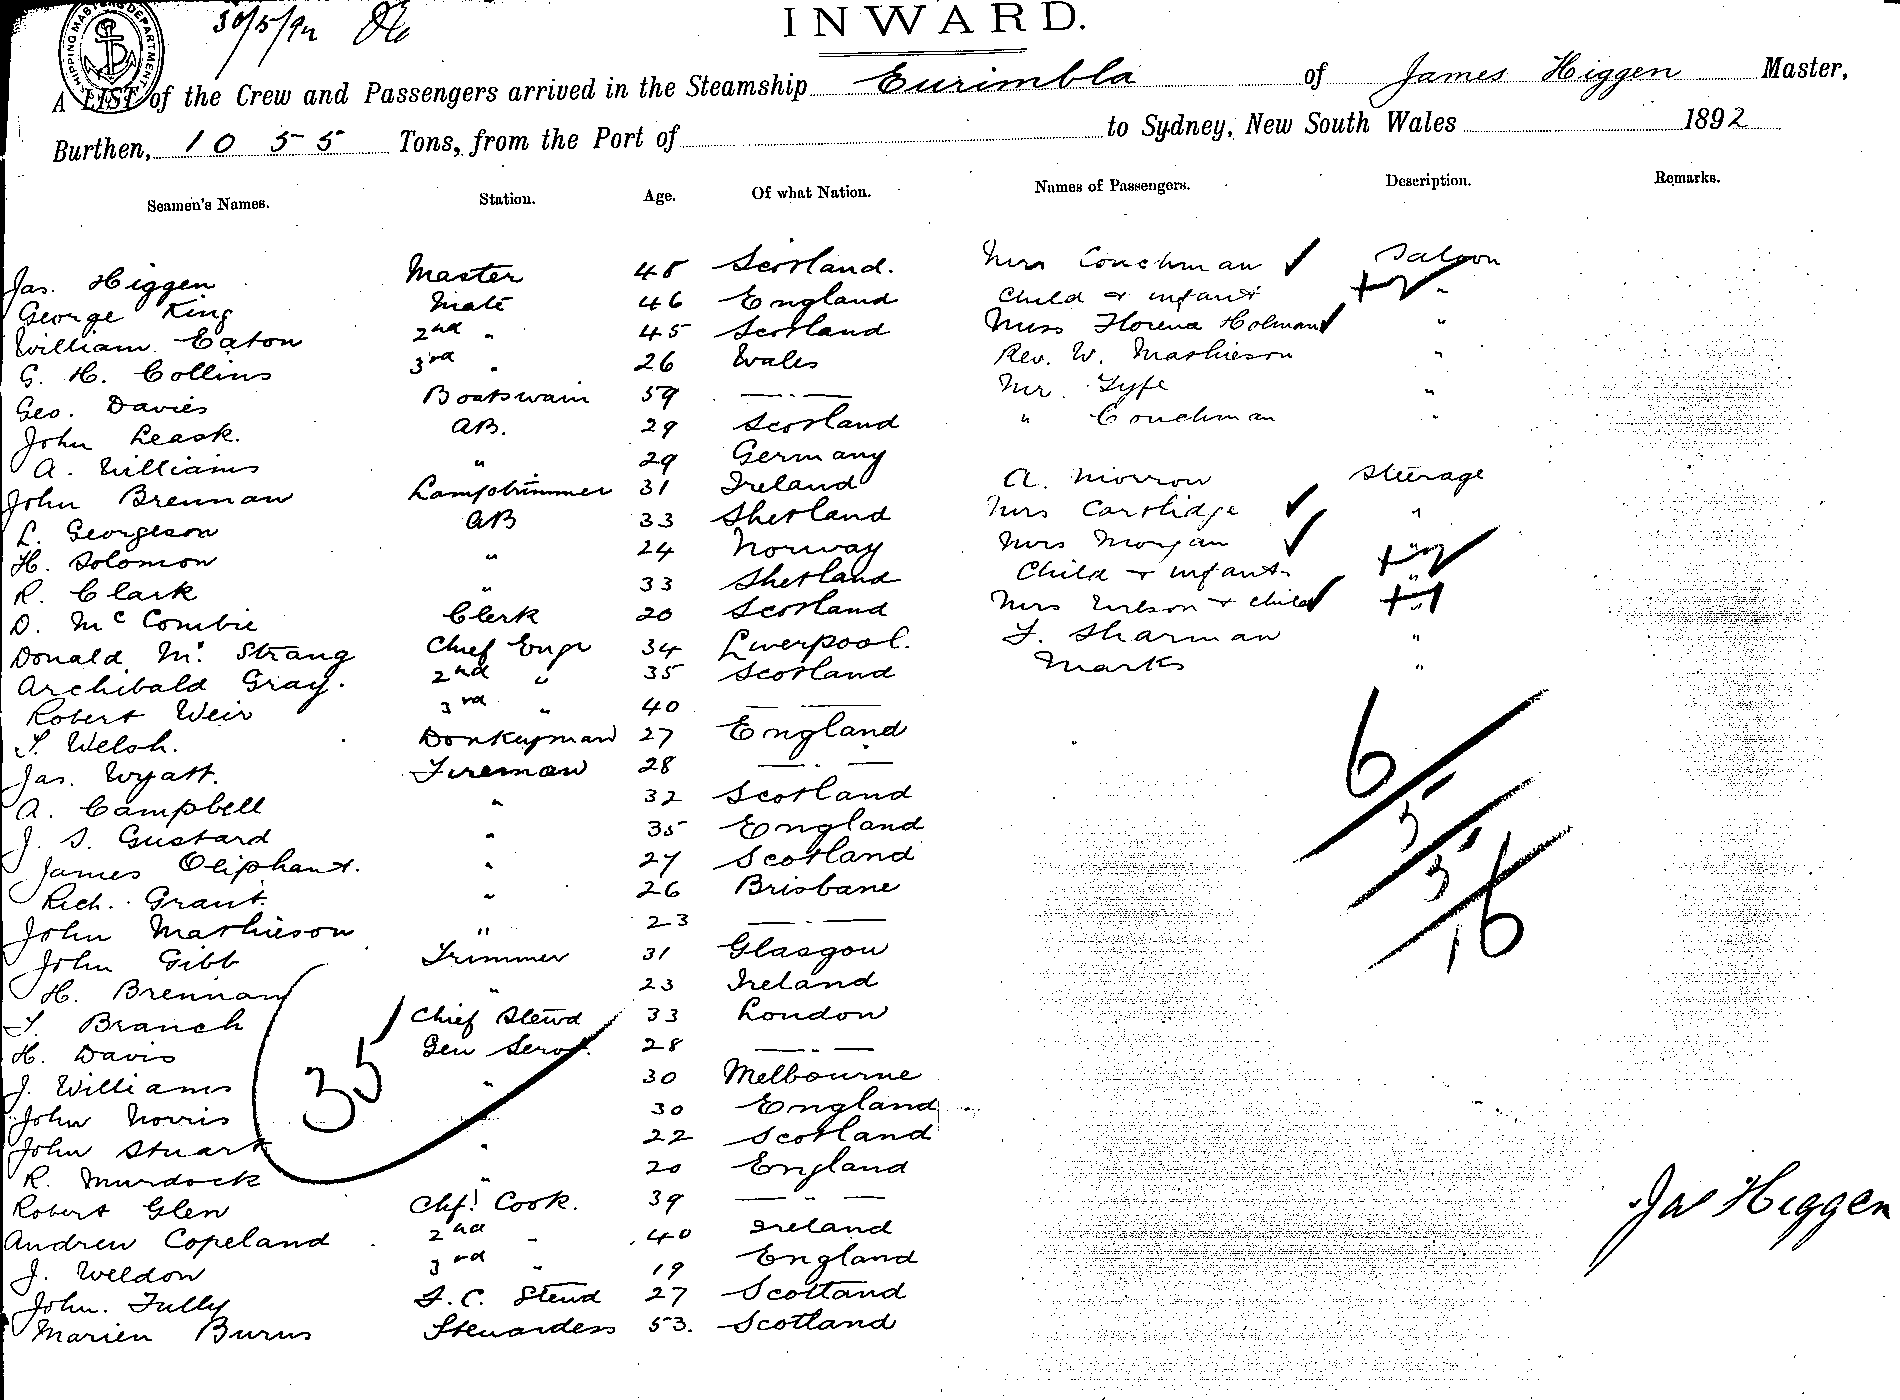 SHIPPING MASTERS DEPARTMENT
30/5/92
INWARD.
A LIST of the Crew and Passengers arrived in the Steamship Eurimbla of James Higgen Master,
Burthen, 1055 Tons, from the Port of to Sydney, New South Wales 1892
Seamen's Names. Station. Age. Of what Nation. Names of Passengers. Description. Remarks.
Jas. Higgen Master 48 Scotland. Mrs Couchman Saloon
George King Mate 46 England Child & infant "
William Eaton 2nd " 45 Scotland Miss Florence Holman "
G. H. Collins 3rd " 26 Wales Rev. W. Mathieson "
Geo. Davies Boatswain 59 —"— Mr. Fyfe "
John Leask. AB. 29 Scotland " Couchman "
A. Williams " 29 Germany
John Brennan Lamptrimmer 31 Ireland A. Morrow Steerage
L. Georgeson AB 33 Shetland Mrs Cartlidge "
H. Solomon " 24 Norway Mrs Morgan "
R. Clark " 33 Shetland Child & infant "
D. McCombie Clerk 20 Scotland Mrs Wilson & child "
Donald Mc. Strang Chief Engr 34 Liverpool. F. Sharman "
Archibald Gray. 2nd " 35 Scotland Marks "
Robert Weir 3rd " 40 —
T. Welsh. Donkeyman 27 England
Jas. Wyatt. Fireman 28 —"—
A. Campbell " 32 Scotland
J. S. Gustard " 35 England
James Oliphant. " 27 Scotland
Rich. Grant. " 26 Brisbane
John Mathieson " 23 —"—
John Gibb Trimmer 31 Glasgow
H. Brennan " 23 Ireland
T. Branch Chief Stewd 33 London
H. Davis Gen Servt. 28 —"—
J. Williams " 30 Melbourne
John Norris 30 England
John Stuart " 22 Scotland
R. Murdock " 20 England
Robert Glen Chf. Cook. 39 —"—
Andrew Copeland 2nd " 40 Ireland
J. Weldon 3rd " 19 England
John. Tully F.C. Stewd 27 Scotland
Marien Burns Stewardess 53. Scotland
35
6
5
5
16
Jas Higgen